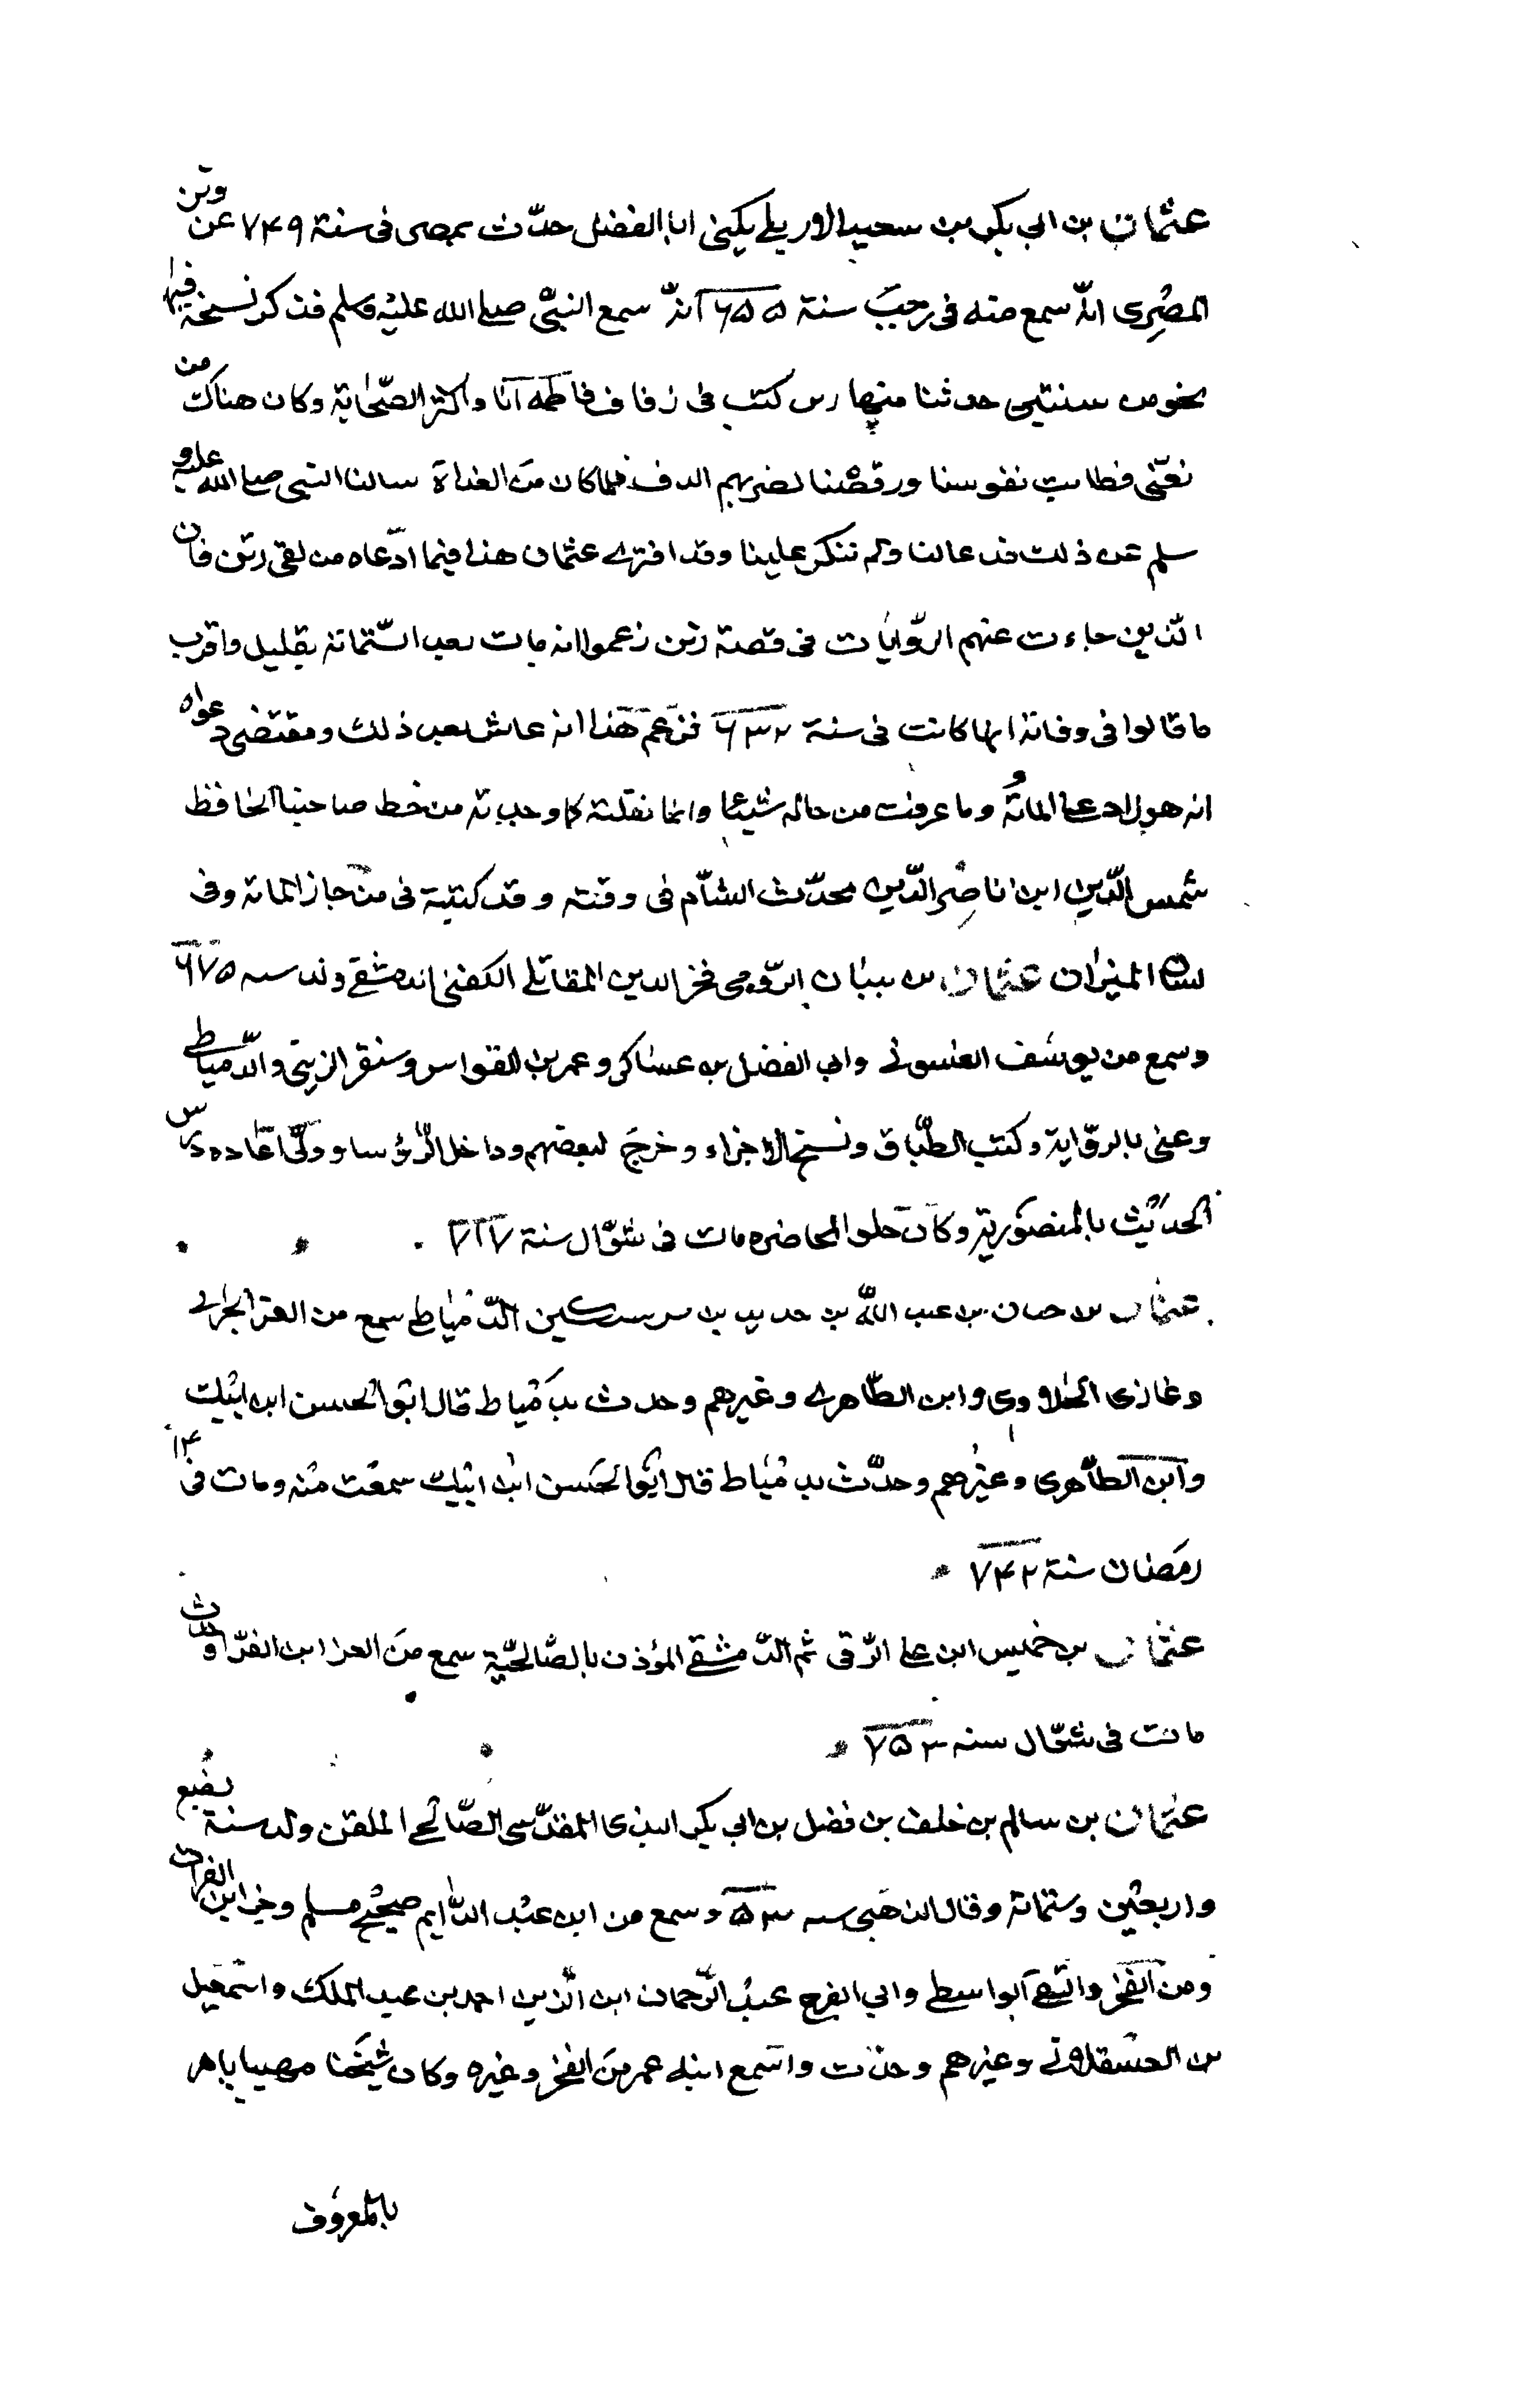 عثمان بن ابي بكر بن سعيد الاربلي يكنى ابا الفضل حدّث بمصر فى سنة ۷۴۹ عن رتن
المصرى انّه سمع منه فى رجب سنة ۶۵۵ انّه سمع النبيّ صلے الله عليه وسلم فذكر نسخة فيها
نحو من سنتين حدثنا منها كنت فى زفاف فاطمه انا واكثر الصّحابة وكان هناك من
تغنّى فطابت نفوسنا ورقصنا لضربهم الدف فلما كان من الغداة سالنا النبى صلے الله عليه و
سلم عن ذلك فدعا لنا ولم ننكر علينا وقد افترى عثمان هذا فيما ادّعاه من لقى رتن فان
الّذين جاءت عنهم الرّوايات فى قصة رتن زعموا انه مات بعد السّتمائة بقليل واقرب
ما قالوا فى وفاته انها كانت فى سنة ۶۳۲ فزعم هذا انه عاش بعد ذلك ومقتضى دعواه
انه هو المائة وما عرفت من حاله شيئا وانما نقلته كما وجدته من خط صاحبنا الحافظ
شمس الدّين ابن ناصر الدّين محدّث الشّام فى وقته وقد كتبته فى من جاز المائة وفى
لسان الميزان عثمان بن بلبان الرّومى فخر الدين المقاتلے الكفتى الدمشقے ولد سنه ۶۷۵
وسمع من يوسف الغسولى وابي الفضل بن عساكر وعمر بن القواس وسنقر الزينى والدّمياطے
وعنى بالرواية وكتب الطّباق ونسخ الاجزاء وخرج لبعضهم وداخل الرّؤسا وولّى اعاده درس
الحديث بالمنصورية وكان حلو المحاضره مات فى شوّال سنة ۷۱۷
عثمان بن حسان بن عبد اللّٰه بن حديد بن الدّمياطے سمع من العز الحرانى
وغازى الحلاوى وابن الطّاهرے وغيرهم وحدث بدمياط قال ابو الحسن ابن ايبك
وابن الطّاهرى وغيرهم وحدّث بدمياط قال ابو الحسن ابن ايبك سمعت منه ومات فى ۱۴
رمضان سنة ۷۴۲
عثمان بن خميس ابن علے الرّقى ثم الدّمشقے المؤذن بالصّالحيّة سمع من العز ابن الفرّا وحدث
مات فى شوّال سنه ۷۵۳
عثمان بن سالم بن خلف بن فضل بن ابي بكر البذى المقدّسى الصّالحے الملقن ولد سنة بضع
واربعين وستمائة وقال الذهبى سنه ۵۳ وسمع من ابن عبد الدائم صحيح مسلم وجزء ابن الفرات
ومن الفخر والتّقے الواسطے وابي الفرج عبد الرّحمان ابن الزين احمد بن عبد الملك واسمعيل
بن العسقلانے وغيرهم وحدّث واسمع ابنه عمر من الفخر وغيره وكان شيخنا مهيبا يامر
بالمعروف